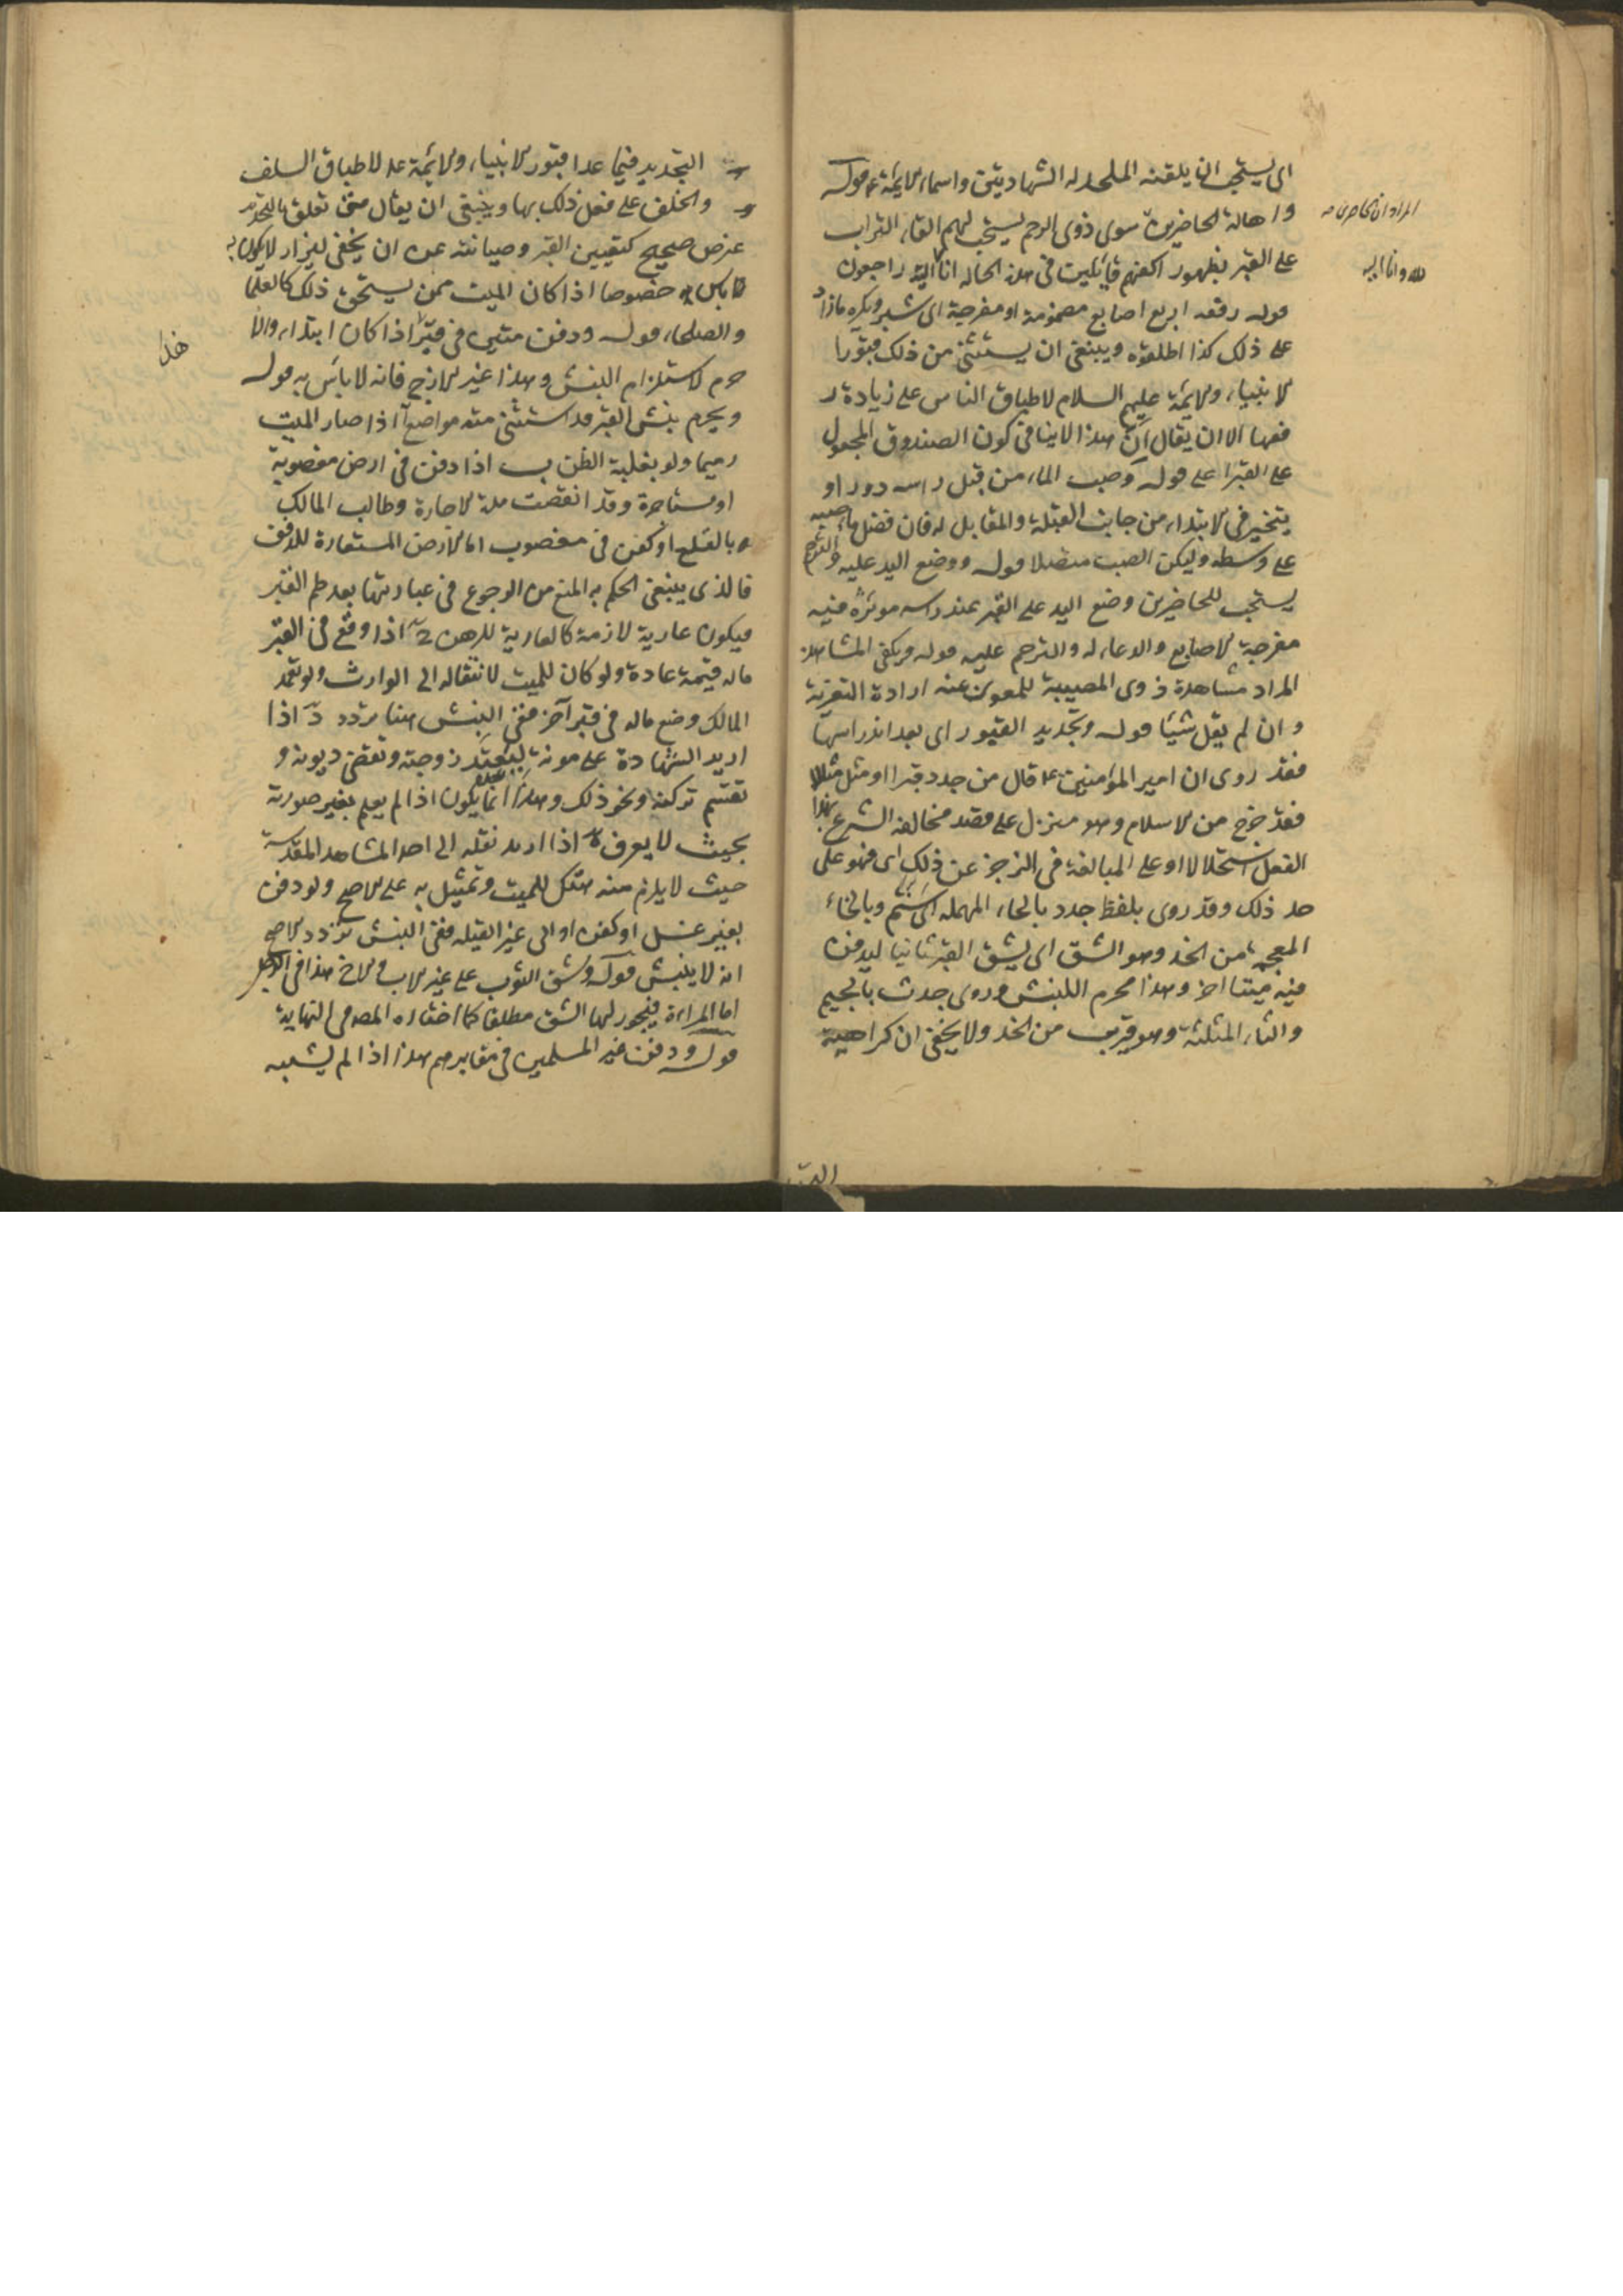 اى يستحب ان يلقنه الملحد له الشهادتين واسماء الائمة ع قوله
المراد ان الحاضرين
واهالة الحاضرين سوى ذوى الرحم يستحب لهم القاء التراب
على القبر بظهور اكفهم قايلين فى هذه الحالة انا اليه راجعون
لله وانا اليه
قوله ورفعه اربع اصابع مضمومة او مفرجة اى شبر ويكره ما زاد
على ذلك كذا اطلقوه وينبغى ان يستثنى من ذلك قبور
الانبياء والايمة عليهم السلام لاطباق الناس على زيادة
فيها الا ان يقال ان هذا لا ينافى كون الصندوق المجعول
على القبر اعلى قوله وصب الماء من قبل راسه دورا و
يتخير فى الابتداء من جانب القبلة والمقابل له فان فضل ماء صبه
على وسطه وليكن الصب متصلا قوله ووضع اليد عليه والترحم
يستحب للحاضرين وضع اليد على القبر عند راسه موثرة فيه
مفرجة الاصابع والدعاء له والترحم عليه قوله ويكفى المشاهدة
المراد مشاهدة ذوى المصيبة للمعزى عند ارادة التعزية
وان لم يقل شيئا قوله وتجديد القبور اى بعد اندراسها
فقد روى ان امير المؤمنين ع قال من جدد قبرا او مثل مثالا
فقد خرج من الاسلام وهو منزل على قصد مخالفة الشرع بهذا
الفعل استحلالا او على المبالغة فى الزجر عن ذلك اى فهو على
حد ذلك وقد روى بلفظ حدد بالحاء المهملة اى سنم وبالخاء
المعجمة من الخد وهو الشق اى يشق القبر ثانيا ليدفن
فيه ميتا اخر وهذا محرم للنبش وروى جدث بالجيم
والثاء المثلثة وهو قريب من الخد ولا يخفى ان كراهية
التجديد فيما عدا قبور الانبياء والايمة ع لاطباق السلف
والخلف على فعل ذلك بها وينبغى ان يقال متى تعلق بالتجديد
غرض صحيح كتعيين القبر وصيانته عن ان يخفى ليزار لا يكون به
باس خصوصا اذا كان الميت ممن يستحق ذلك كالعلما
والصلحاء قوله ودفن ميتين فى قبر اذا كان ابتداء والا
هذا
حرم لاستلزام النبش وهذا غير الازج فانه لا باس به قوله
ويحرم نبش القبر قد استثنى منه مواضع آ اذا صار الميت
رميما ولو بغلبة الظن ب اذا دفن فى ارض مغصوبة
او مستاجرة وقد انقضت مدة الاجارة وطالب المالك
بالقلع او كفن فى مغصوب اما الارض المستعارة للدفن
فالذى ينبغى الحكم به المنع من الرجوع فى عباريتها بعد طم القبر
فيكون عارية لازمة كالعارية للرهن ج اذا وقع فى القبر
ما له قيمة عادة ولو كان للميت لانتقاله الى الوارث ولو تعمد
المالك وضع ماله فى قبر آخر ففى النبش هنا تردد د اذا
اريد الشهادة على موته لتعتد زوجته وتقضى ديونه و
تقسم تركته ونحو ذلك وهذا انما يكون اذا لم يعلم تغير صورته
بحيث لا يعرف ه اذا اريد نقله الى احد المشاهد المقدسة
حيث لا يلزم منه هتك للميت وتمثيل به على الاصح ولو دفن
بغير غسل او كفن او الى غير القبلة ففى النبش تردد الاصح
انه لا ينبش قوله وشق الثوب على غير الاب والاخ هذا فى الرجل
اما المراءة فيجوز لها الشق مطلقا كما اختاره المص فى النهاية
قوله ودفن غير المسلمين فى مقابرهم هذا اذا لم يشتبه